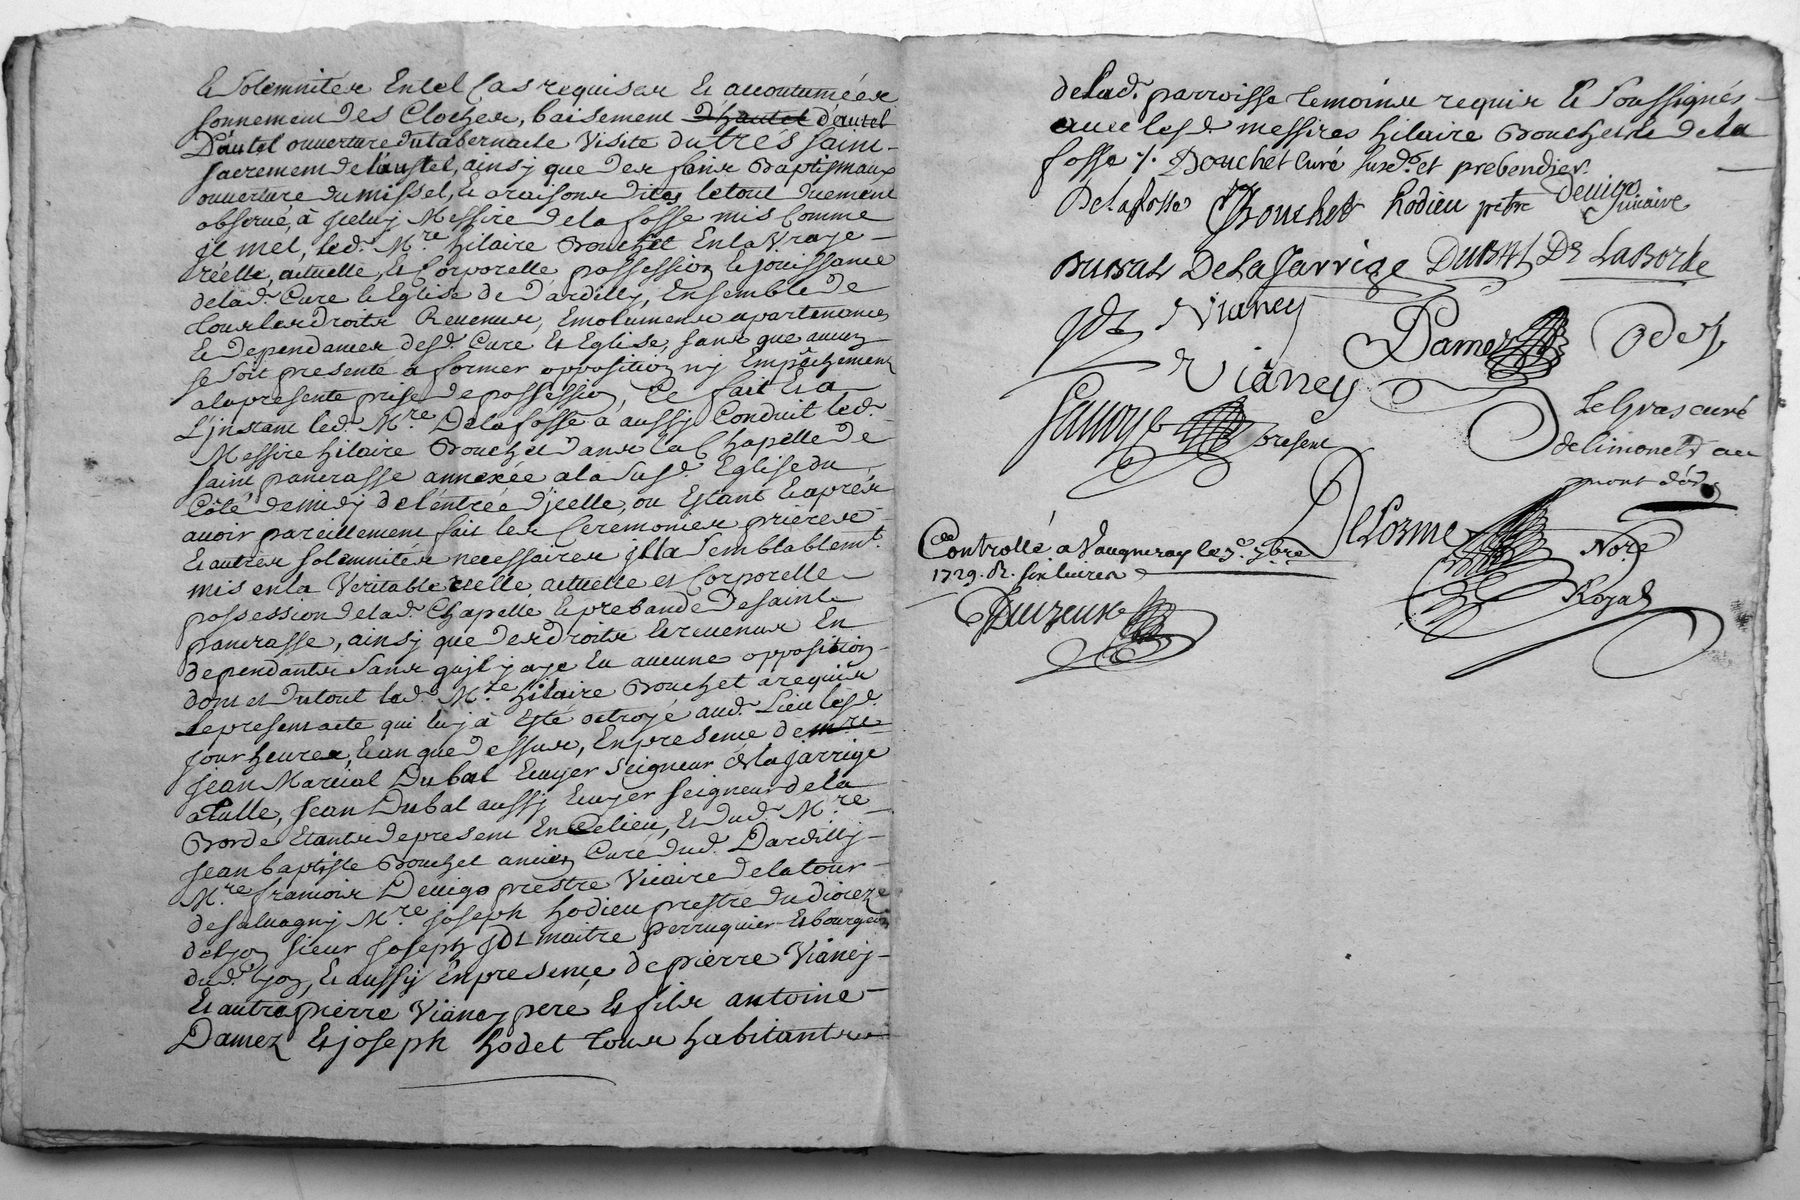 et solemnitéz en tel cas requises et accoutuméez
sonnement des cloches, baisement d'hautel d'autel
D'autel ouverture du tabernacle visite du trés saint
sacrement de l'austel, ainsy que des fons baptismaux
ouverture du missel, et oraisons dites le tout duement
observé, à iceluy Messire de la fosse mis comme
il met, led. Mre hilaire Bouchet en la vraye
réelle, actuelle, et corporelle possession et jouissance
de lad. Cure et Eglise de d'ardilly, ensemble de
tous les droits Revenus, Emoluments apartenances
et dependances desd. Cure et Eglise, sans que aucun
se soit presenté a former opposition ny Empêchement
a la presente prise de possession, Ce fait et a
L'instant led. Mre Delafosse a aussy Conduit led.
Messire hilaire Bouchet dans la Chapelle de
saint pancrasse annexée a la susd. Eglise du
côté de midy de l'éntrée d'jcelle, ou Estant et aprés
avoir pareillement fait les Ceremonies prieres
et autres solemnités necessaires jl la semblablemt.
mis en la Veritable réelle actuelle et Corporelle
possession de lad. Chapelle et prebande de saint
pancrasse, ainsy que des droits et revenus En
dependants sans qu'jl y aye Eu aucune opposition
dont et du tout led. Mre hilaire Bouchet a requis
le present acte qui luy à Esté octroyé aud. Lieu lesd.
jour heures, et an que dessus, En presence de mre
jean Martial Dubal Ecuyer Seigneur de la jarrige
a tulle, jean Dubal aussy Ecuyer seigneur de la
Borde Etants de present En ce lieu, et dud. Mre
jean baptiste Bouchet ancien Curé dud. Dardilly
Mre francois Devigo prestre Vicaire de la tour
de salvagny Mre joseph hodieu prestre du dioceze
de lyon sieur joseph jdt maitre perruquier et bourgeois
dud. lyon, et aussy En presence de pierre Vianey
et autre pierre Vianey pere et fils antoine
Damez et joseph hodet tous habitants
de lad. parroisse temoins requis et soussignés
avec lesd. messires hilaire Bouchet et de la
fosse ./. Bouchet curé susd. et prebendier
Delafosse Bouchet hodieu pstre Devigo vicaire
DUBAL DE LA Jarrige DUBAL De LABorde
jdt Vianey Damez Odet
Vianey
present
Le Gras curé
de limonest au
mont d'or
Delorme
Nore
Royal
Controllé a Vaugneray le 7bre
1729. R. six livres